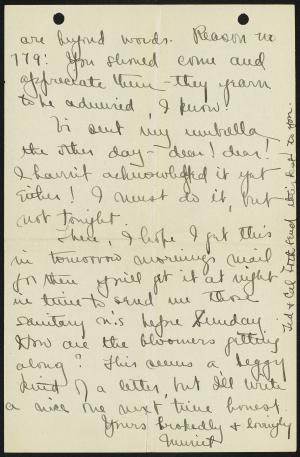 are beyond words. Reason no
779: You should come and
appreciate them - they yearn
to be admired, I know!
Vi sent my umbrella
the other day - dear! dear!
I haven't acknowledged it yet
either! I must do it, but
not tonight.
There, I hope I get this
in tomorrow morning's mail
for then you'll get it at night
in time to send me those
sanitary n's before Sunday.
How are the bloomers getting
along? This seems a beggy
kind of a letter, but I'll write
a nice one next time honest.
Yours brokedly & lovingly
Muriel
Ted & Cal Hth send their best to you.